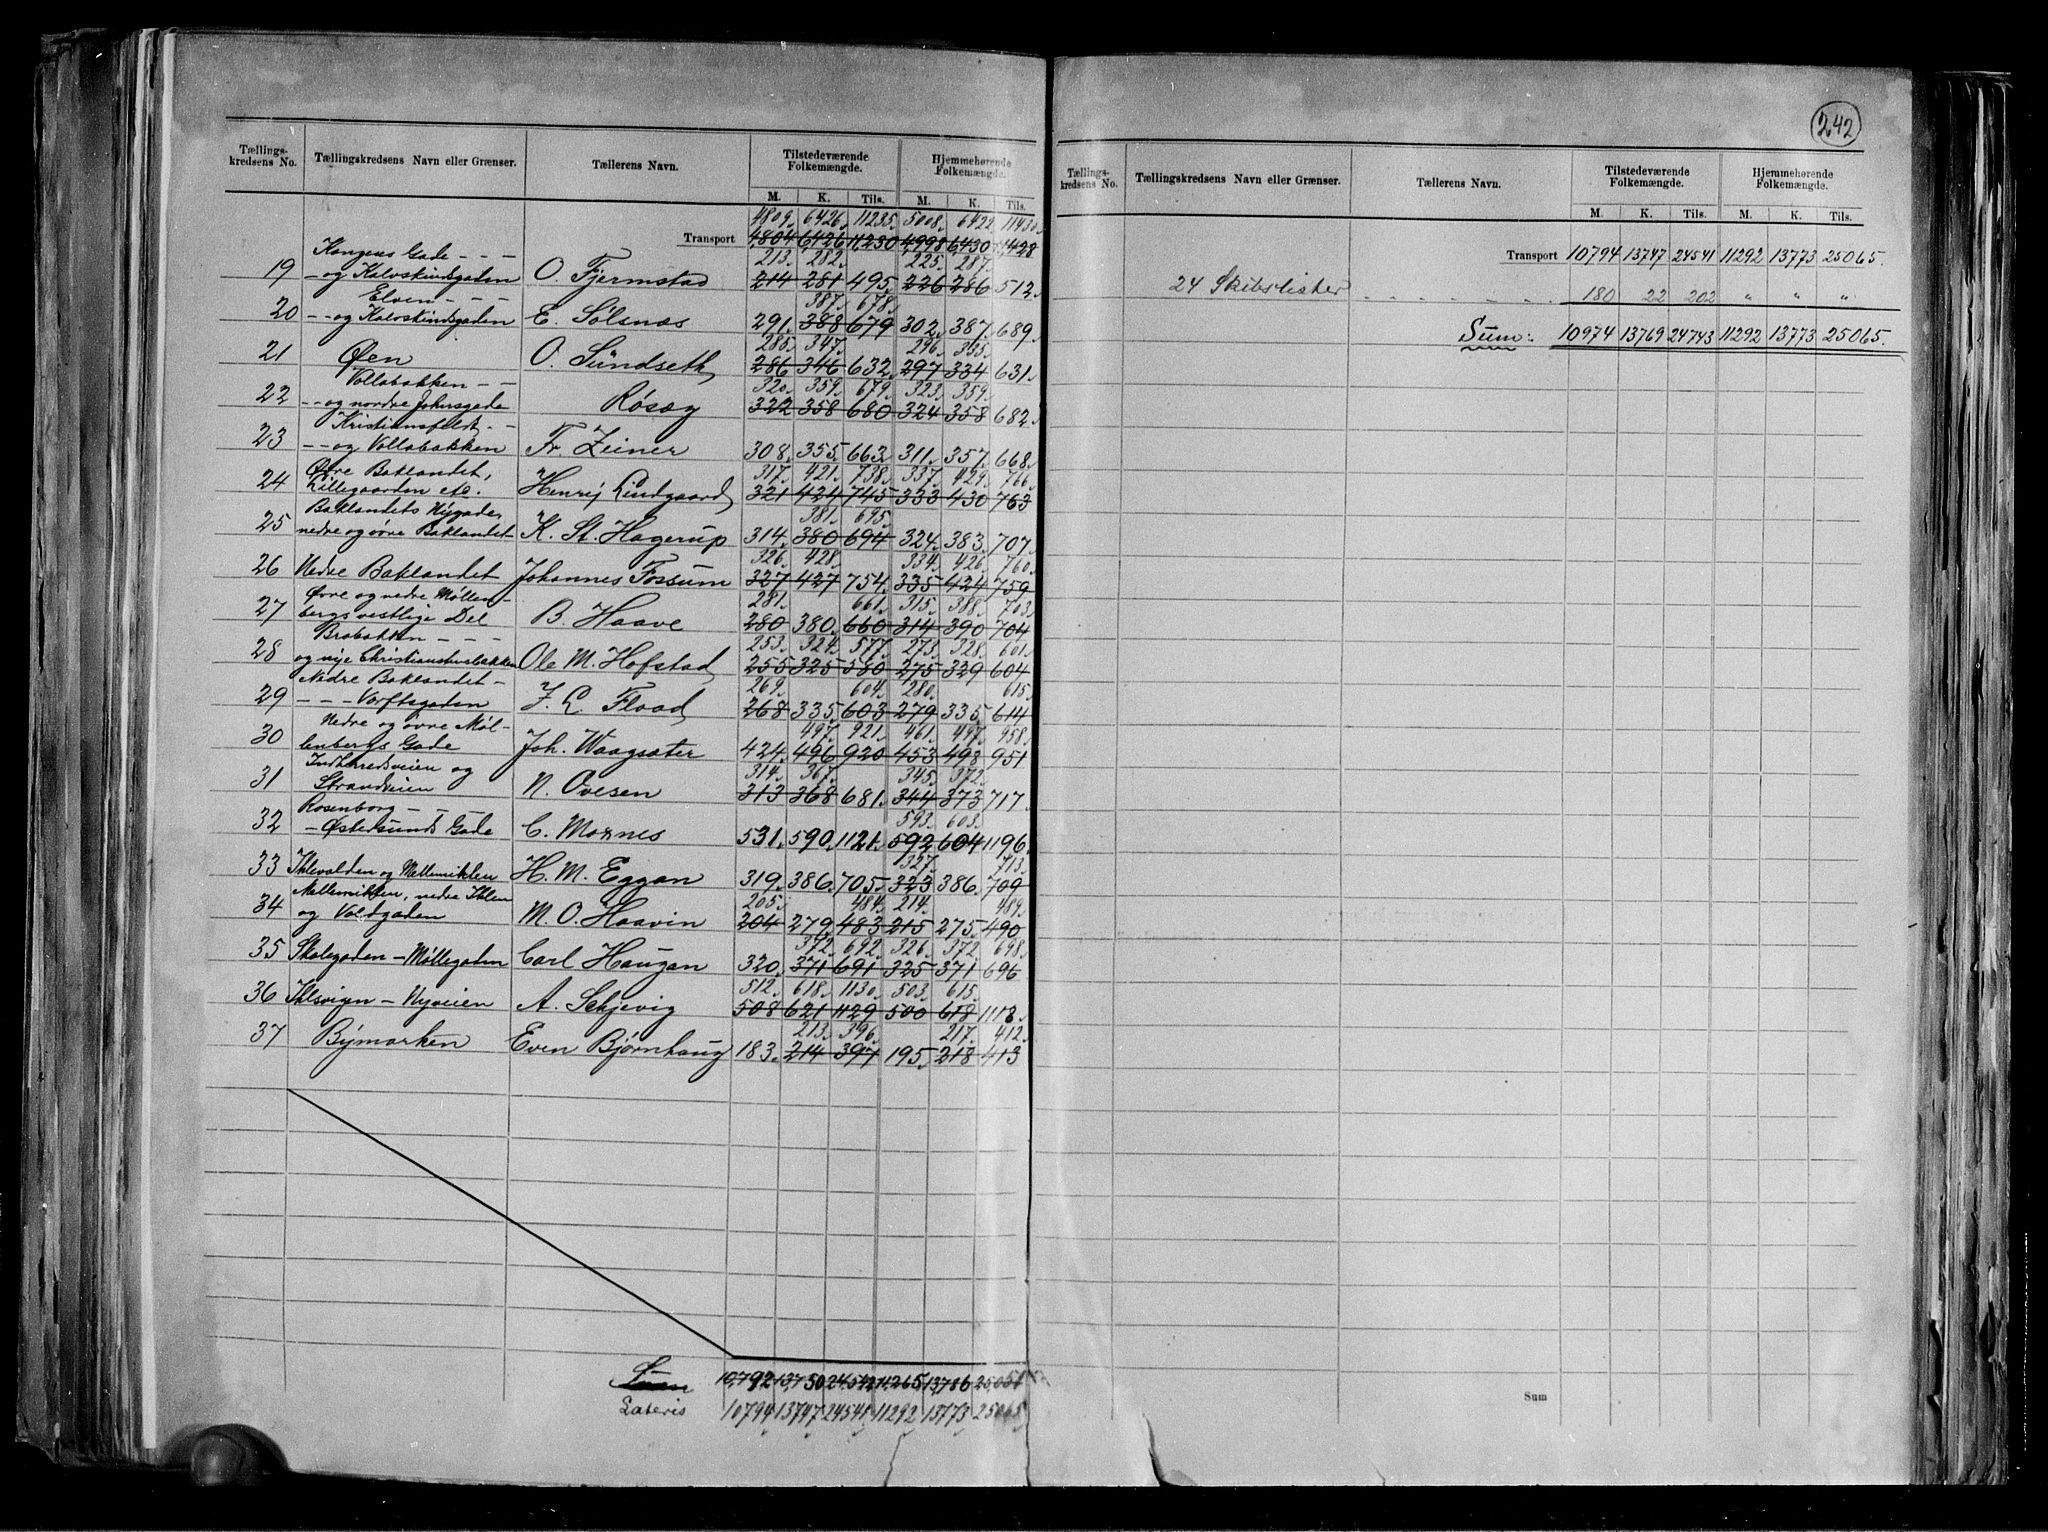 Tællings-
kredsens No.
Tællingskredsens Navn eller Grænser.
Tællerens Navn.
Tilstedeværende
Folkemængde.
Hjemmehørende
Folkemængde.
M. K. Tils. M. K. Tils.
4809. 6426. 11235. 5008. 6422 11430.
Transport 4,804 6,426 11,230 4,998 6,430 11,428
Kongens Gade - - - 213. 282. 225. 287.
19 - og Kalvskindsgaden O. Fjermstad 214 281 495. 226 286 512.
Elven - - - 387. 678.
20 - - og Kalvskindsgaden E. Sølsnæs 291. 388 679 302. 387. 689.
285. 347. 296. 335.
21 Øen O. Sundseth 286 346 632. 297 334 631.
Vollabakken - - 320. 359. 679. 323. 359.
22 - - og nordre Johersgade Røsæg 322 358 680 324 358 682.
Kristiansfeldt - -
23 - - og Vollabakken Fr. Zeiner 308. 355. 663. 311. 357. 668.
Øvre Baklandet, 317. 421. 738. 337. 429. 766.
24 Lillegaarden etc. Henrij Lindgaard 321 424 745 333 430 763
Baklandets Nygade, 381. 695.
25 nedre og øvre Baklandet K. St. Hagerup 314. 380 694 324. 383. 707.
326. 428. 334. 426. 760.
26 Nedre Baklandet Johannes Fossum 327 427 754. 335 424 759
Øvre og nedre Møllen- 281. 661. 315. 388. 703
27 bergs vestlige Del B. Haave 280 380. 660 314 390 704
Brobakken - - - 253. 324. 577. 273. 328. 601.
28 og nye Christianstensbakken Ole M. Hofstad 255 325 580 275 329 604
Nedre Baklandet - 269. 604. 280. 615.
29 - - - Værftsgaden J. L. Flood 268 335. 603 279 335. 614
Nedre og øvre Møl- 497. 921. 461. 497. 958.
30 lenbergs Gade Joh. Waagsæter 424. 496 920 453 498 951
Indherredsveien og 314. 367. 345. 372.
31 Strandveien N. Ovesen 313 368 681. 344 373 717.
Rosenborg - - - 593. 603.
32 - Østersunds Gade C. Moxnes 531. 590. 1121. 592 604 1196.
327. 713.
33 Ihlevolden og Mellemiklen H. M. Eggan 319. 386. 705. 323 386. 709
Mellemiklen, nedre Ihlen 205. 484. 214. 489.
34 og Voldgaden M. O. Haavin 204 279. 483 215 275. 490
372. 692. 326. 372. 698.
35 Skolegaden - Møllegaden Carl Haugan 320. 371 691 325 371 696
512. 618. 1130. 503. 615.
36 Ihlsvigen - Nyveien A. Schjevig 508 621 1129 500 618 1118.
213. 396. 217. 412.
37 Bymarken Even Bjørnhaug 183. 214 397 195. 218 413
Sum 10,792 13,750 24,542 11,265 13,786 25,051
Lateris 10794 13747 24541 11292 13773 25065
242
Tællings-
kredsens No.
Tællingskredsens Navn eller Grænser.
Tællerens Navn.
Tilstedeværende
Folkemængde.
Hjemmehørende
Folkemængde.
M. K. Tils. M. K. Tils.
Transport 10794 13747 24541 11292 13773 25065.
24 Skibslister - - - - - - - 180 22 202 " " "
Sum: 10974 13769 24743 11292 13773 25065.
Sum